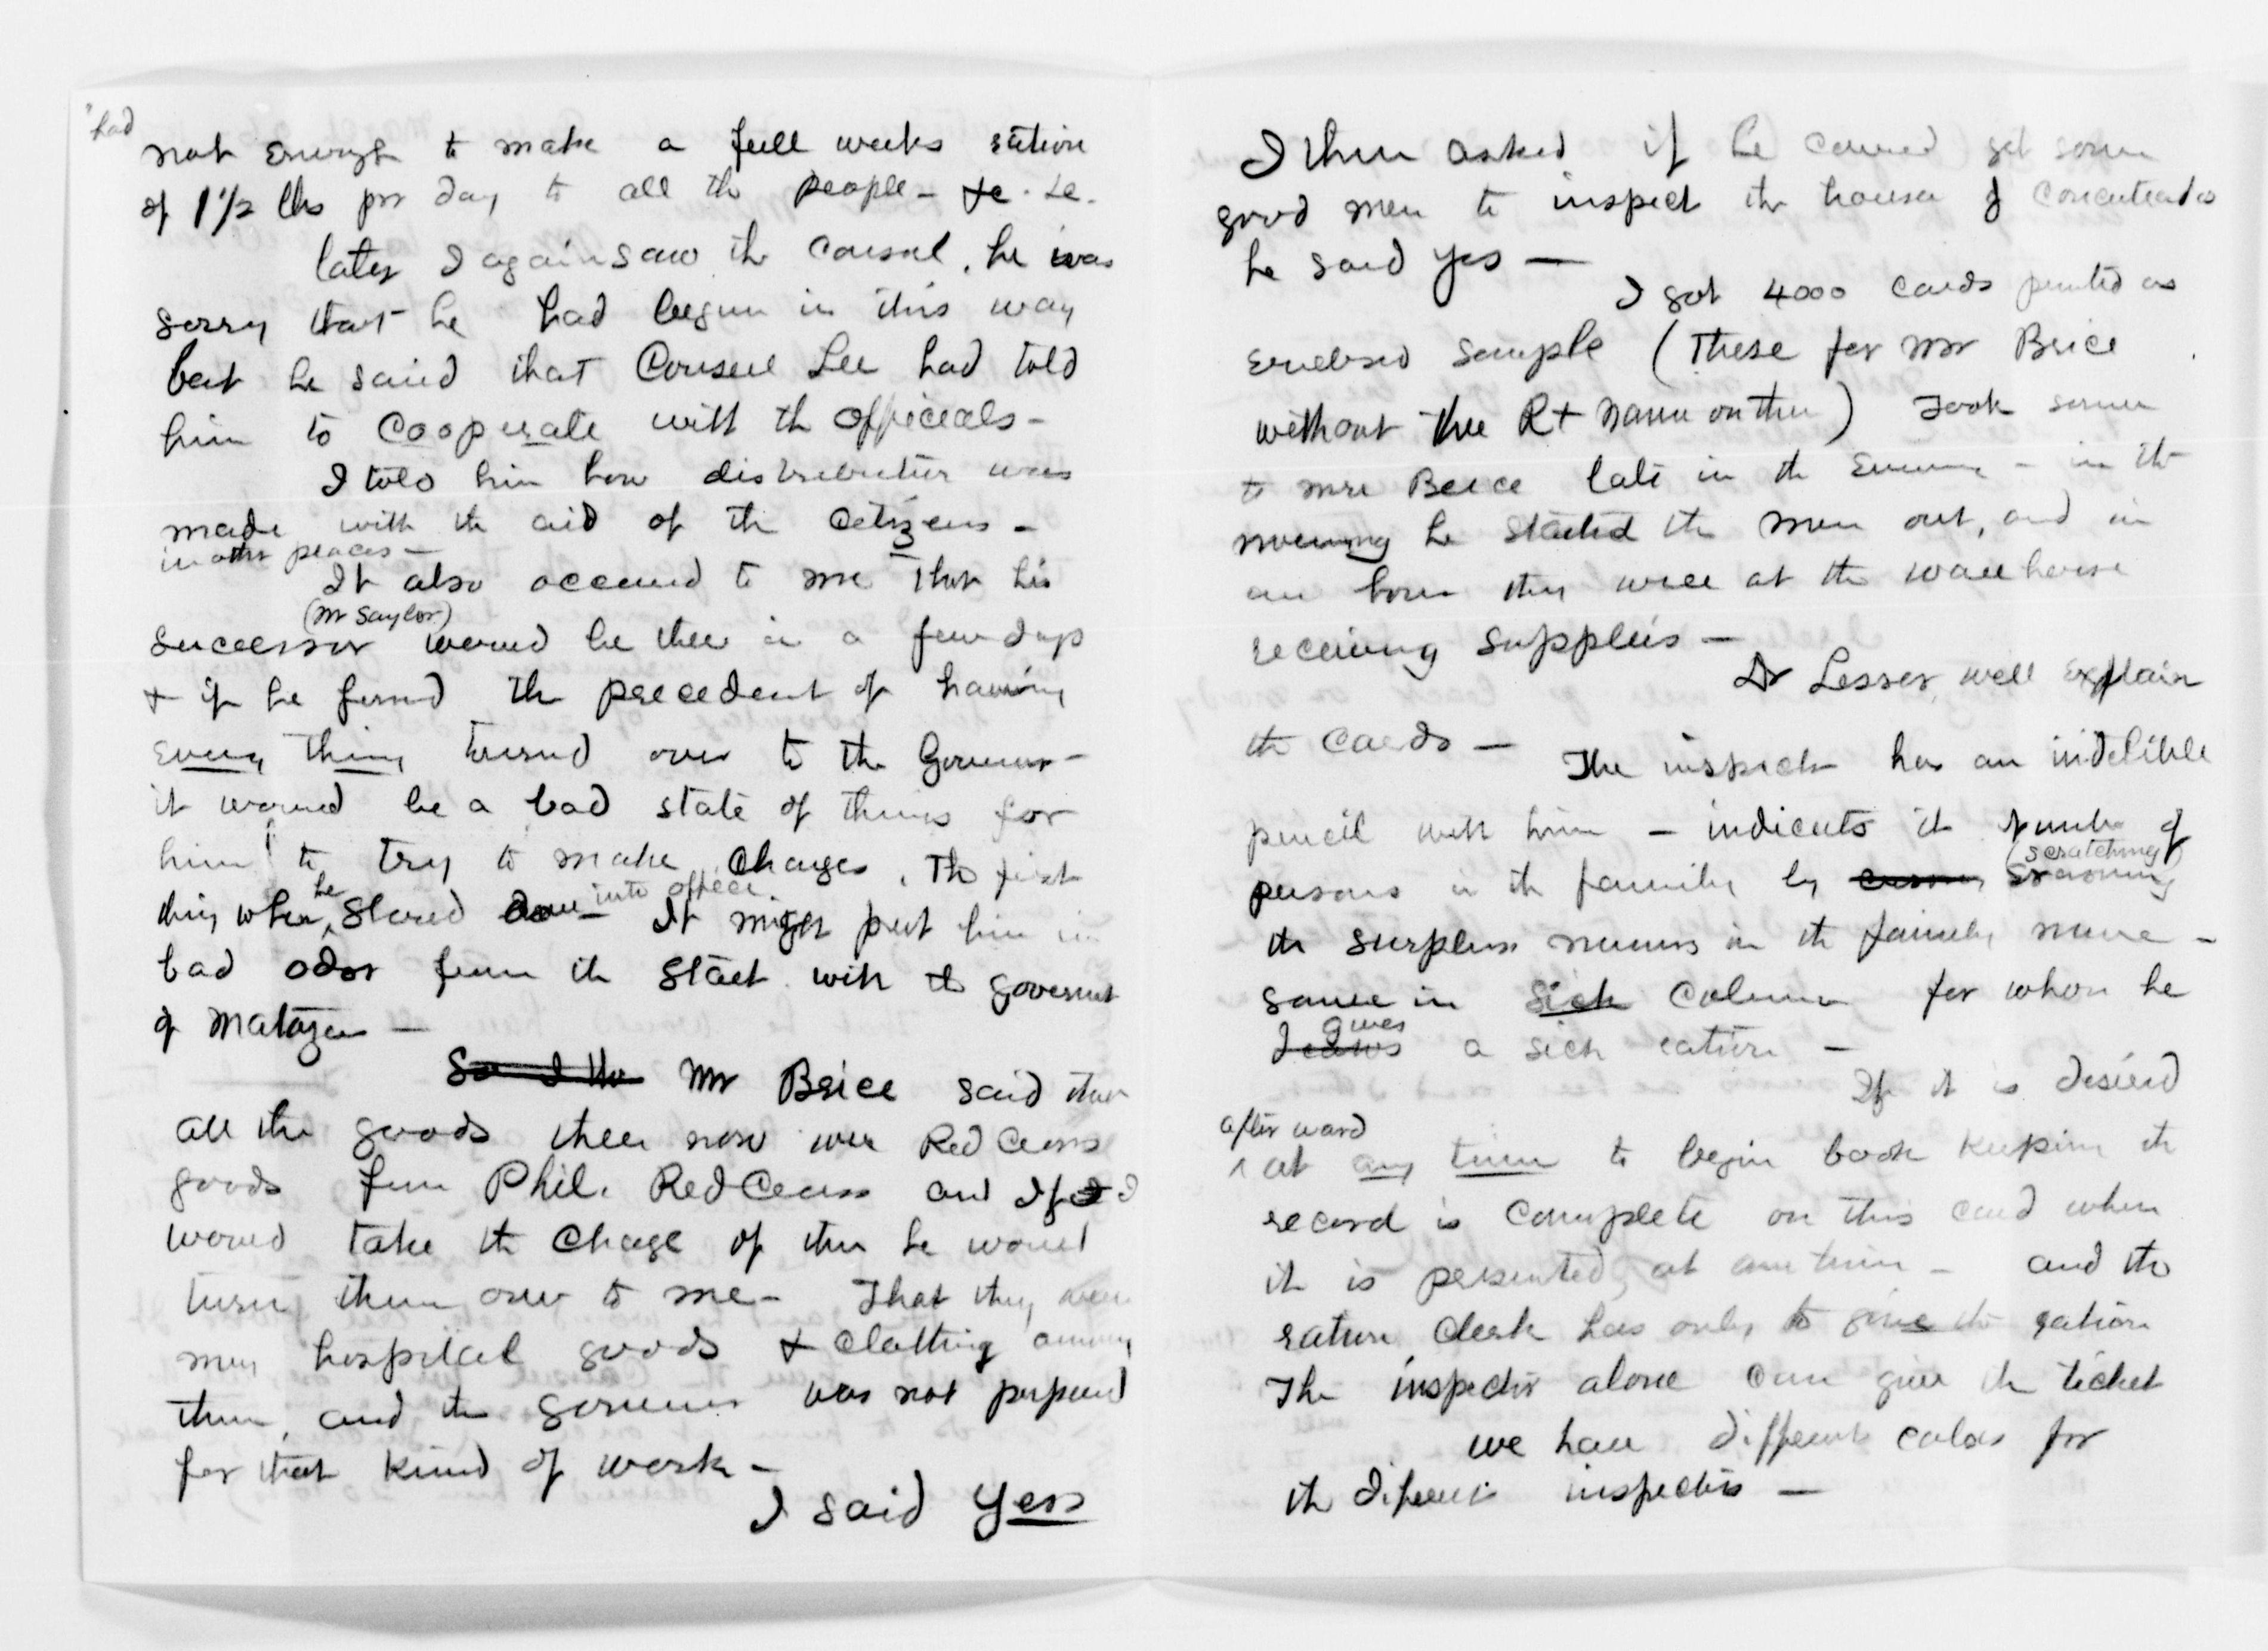 had
not enough to make a full weeks ration
of 1 1/2 lbs pr day to all the people - &c. &c.
later I again saw the Consul, he was
sorry that he had begun in this way
but he said that Consul Lee had told
him to Cooperate with the officials -
I told him how distribution was
made with the aid of the citizens -
in other places -
It also occurred to me that his
(Mr Saylor)
successor would be there in a few days
& if he found the precedent of having
every thing turned over to the Governor -
it would be a bad state of things for
him to try to make changes, the first
thing when he into office
It might put him in
bad odor from the start with the government
of Matazen -
So I tho Mr Brice said that
all the goods there now were Red Cross
goods from Phil. Red Cross and If I
would take the charge of them he would
turn them over to me - That they were
many hospital goods & clothing among
them, and the governor was not prepared
for that kind of work -
I said Yes
I then asked if he could get some
good men to inspect the houses of Concentrados
he said yes -
I got 4000 cards printed as
enclosed sample (These for Mr Brice
without the R+ name on them) Took some
to Mr Brice late in the evening - in the
morning he started the men out, and in
an hour they were at the warehouse
receiving supplies -
Dr Lesser will explain
the cards -
The inspector has an indelible
pencil with him - indicates the number of
(scratching)
persons in the family by
the surplus numbers in the family name -
same in sick column for whom he
gives
draws a sick ration -
If it is desired
after ward
at any time to begin book keeping the
record is complete on this card when
it is presented at any time - and the
ration clerk has only to give the ration
The inspector alone can give the ticket
we have different colors for
the different inspectors -